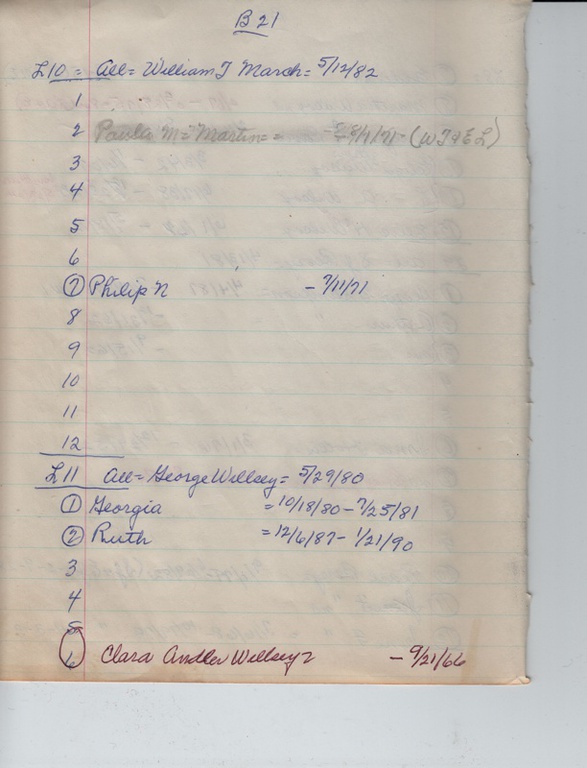 B 21
L10 = All = William T March = 5/12/82
1
2 Paula M = Martin = - 9/1/71 - (W T & E L)
3
4
5
6
7 Philip N - 7/11/71
8
9
10
11
12
L11 All = George Willsey = 5/29/80
1 Georgia = 10/18/80 - 7/25/81
2 Ruth = 12/6/87 - 1/21/90
3
4
5
6 Clara Willsey - 9/21/66